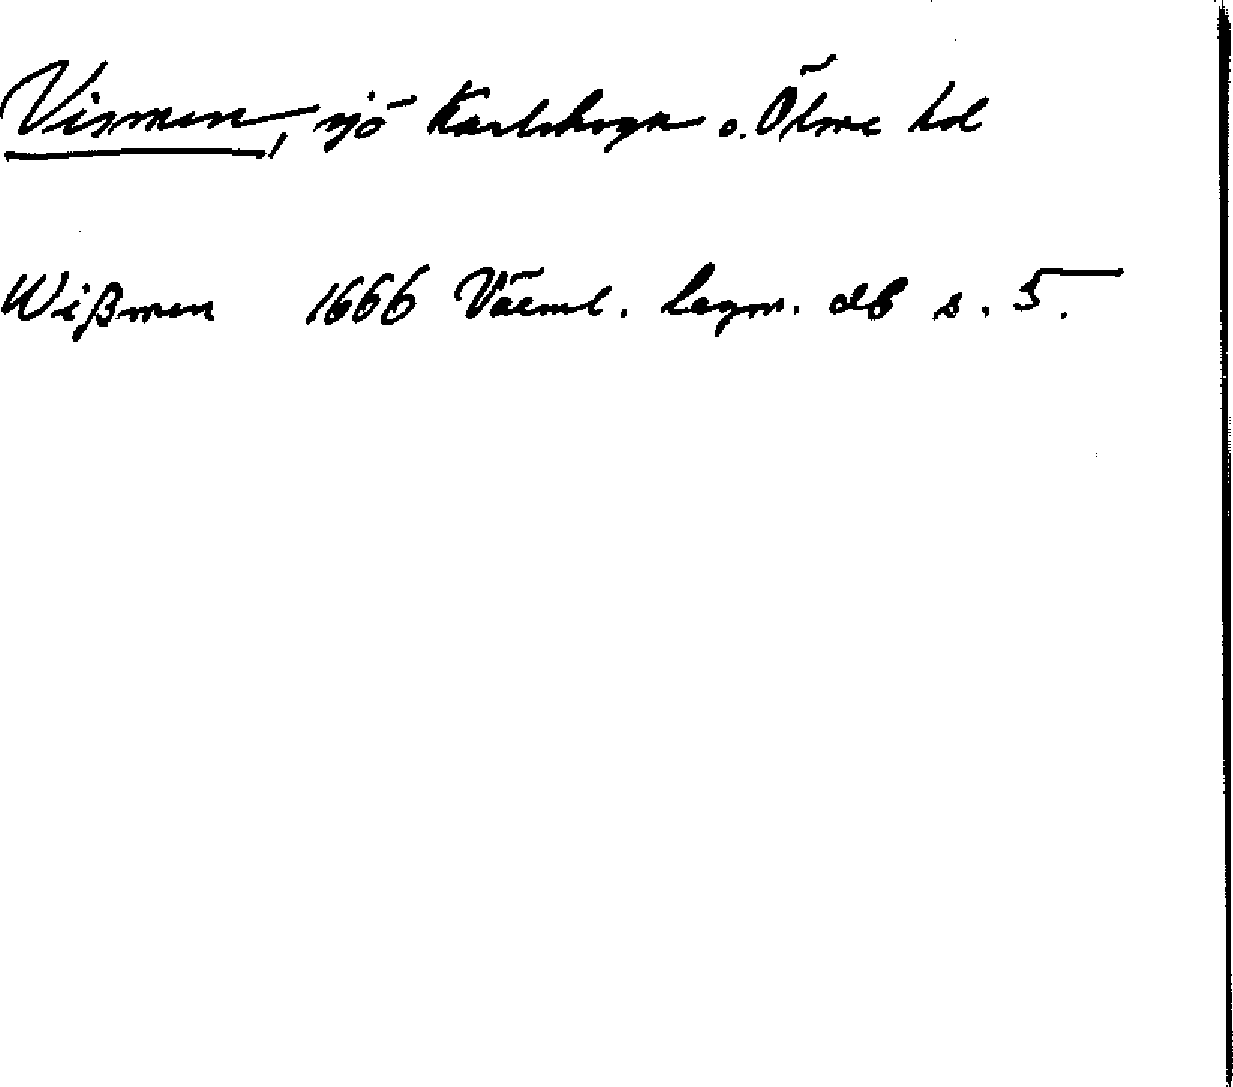 Vismen, sjö Karlskoga o. Ölme hd
Wißmen 1666 Värml. lagm. db s. 5.